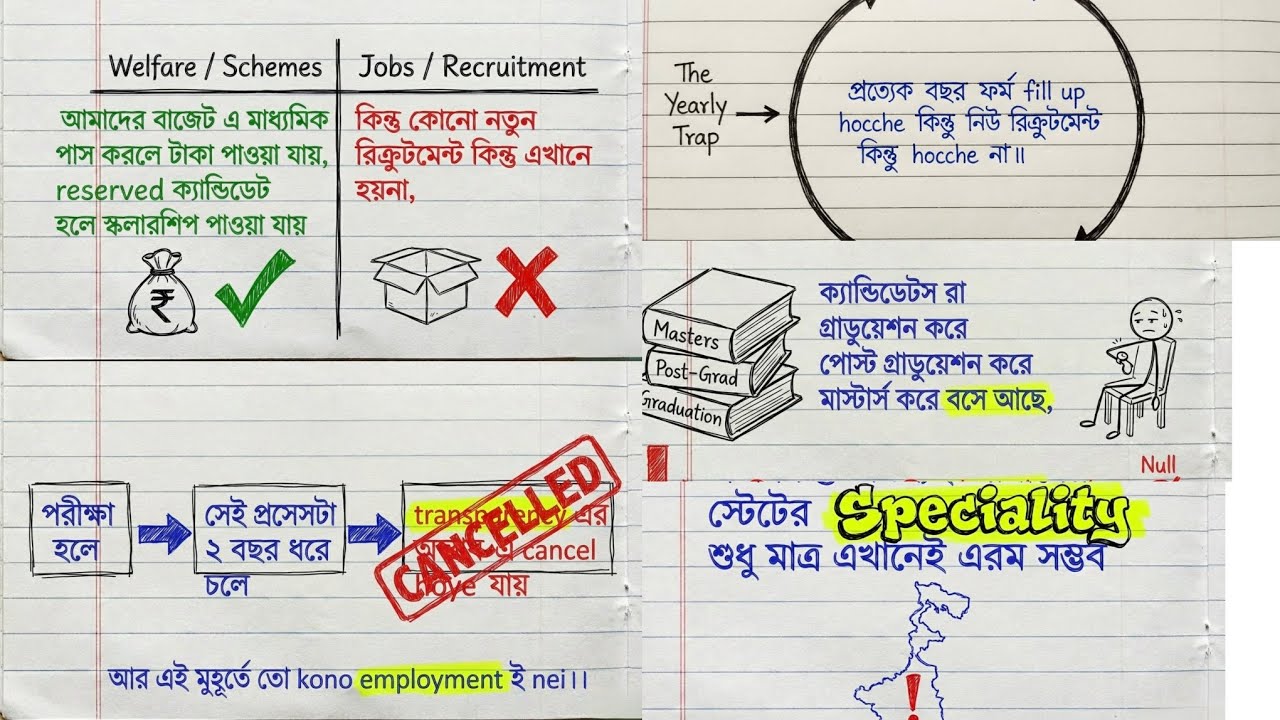 Welfare / Schemes
আমাদের বাজেট এ মাধ্যমিক
পাস করলে টাকা পাওয়া যায়,
reserved ক্যান্ডিডেট
হলে স্কলারশিপ পাওয়া যায়
₹
Jobs / Recruitment
কিন্তু কোনো নতুন
রিক্রুটমেন্ট কিন্তু এখানে
হয়না,
The
Yearly
Trap
প্রত্যেক বছর ফর্ম fill up
hocche কিন্তু নিউ রিক্রুটমেন্ট
কিন্তু hocche না॥
Masters
Post-Grad
Graduation
ক্যান্ডিডেটস রা
গ্রাডুয়েশন করে
পোস্ট গ্রাডুয়েশন করে
মাস্টার্স করে বসে আছে,
Null
পরীক্ষা
হলে
সেই প্রসেসটা
২ বছর ধরে
চলে
transparency এর
এ cancel
hoye যায়
CANCELLED
আর এই মুহূর্তে তো kono employment ই nei।।
স্টেটের Speciality
শুধু মাত্র এখানেই এরম সম্ভব
!